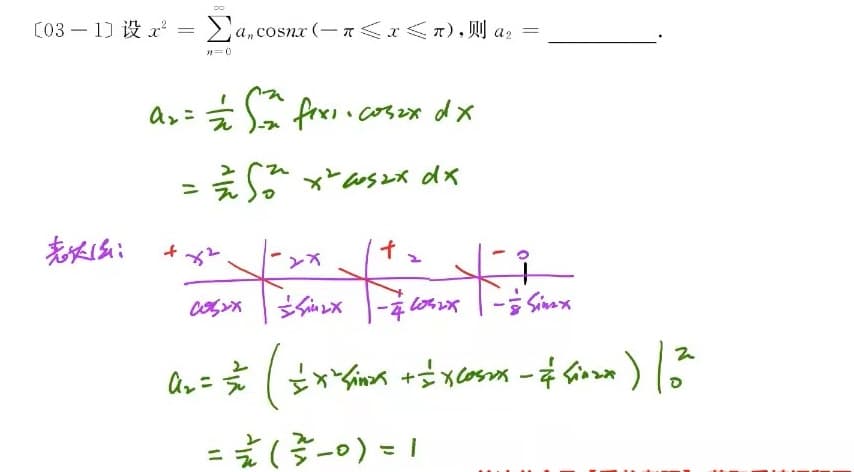 〔03－1〕设 x² = ∑_{n=0}^{∞} aₙcosnx(－π≤x≤π),则 a₂ = ________.
a₂ = 1/π ∫_{-π}^{π} f(x)·cos2x dx
= 2/π ∫_0^π x²cos2x dx
表格法: + x² | - 2x | + 2 | - 0
cos2x | 1/2 sin2x | -1/4 cos2x | -1/8 sin2x
a₂ = 2/π ( 1/2 x²sin2x + 1/2 xcos2x - 1/4 sin2x ) |_0^π
= 2/π ( π/2 - 0 ) = 1